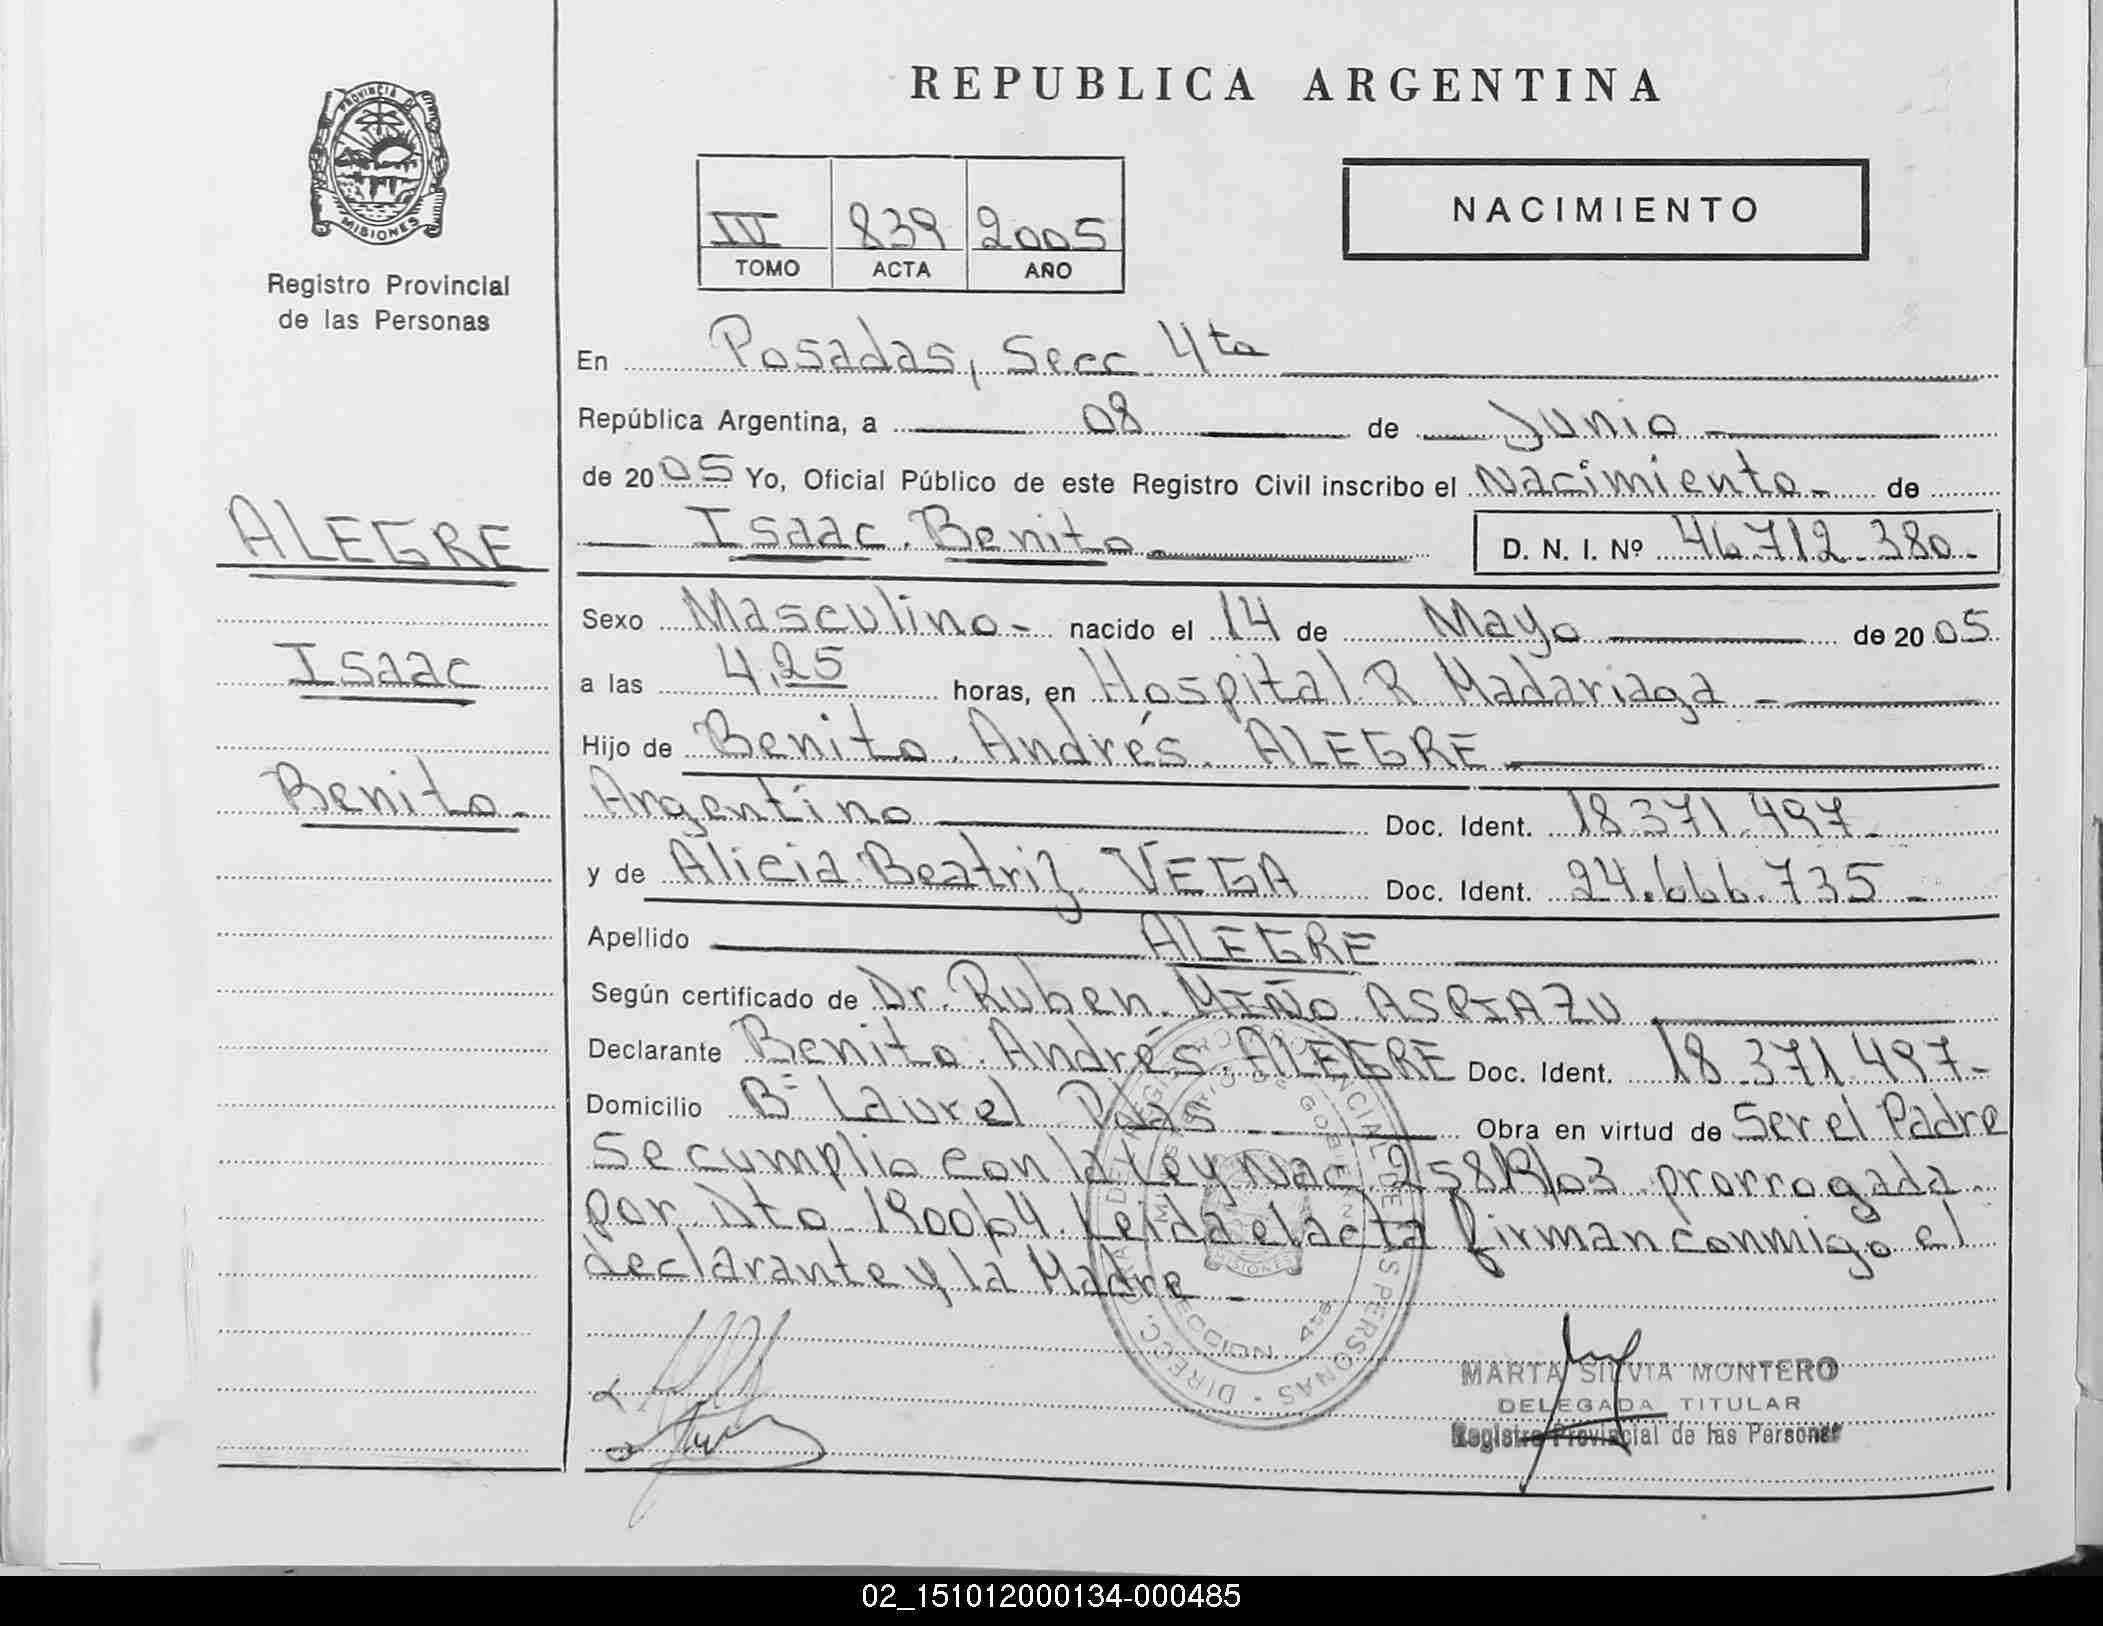 REPUBLICA ARGENTINA
PROVINCIA DE
MISIONES
Registro Provincial
de las Personas
839 2005
TOMO ACTA AÑO
NACIMIENTO
ALEGRE
Isaac
Benito.
En Posadas, Secc 4ta
República Argentina, a 08 de Junio
de 2005 Yo, Oficial Público de este Registro Civil inscribo el Nacimiento de
Isaac Benito
D. N. I. Nº 46.712.380
Sexo Masculino nacido el 14 de Mayo de 2005
a las 4,25 horas, en Hospital R Madariaga
Hijo de Benito Andrés ALEGRE
Argentino Doc. Ident. 18.371.497
y de Alicia Beatriz VEGA Doc. Ident. 24.666.735
Apellido ALEGRE
Según certificado de Dr. Ruben MIÑO ASPIAZU
Declarante Benito Andrés ALEGRE Doc. Ident. 18.371.497
Domicilio Bº Laurel Pdas Obra en virtud de Ser el Padre
Se cumplio con la Ley Nac 25819/03 prorrogada
por Dto 1900/04. Leida el acta firman conmigo el
declarante y la Madre
MARTA SILVIA MONTERO
DELEGADA TITULAR
Registro Provincial de las Personas
02_151012000134-000485